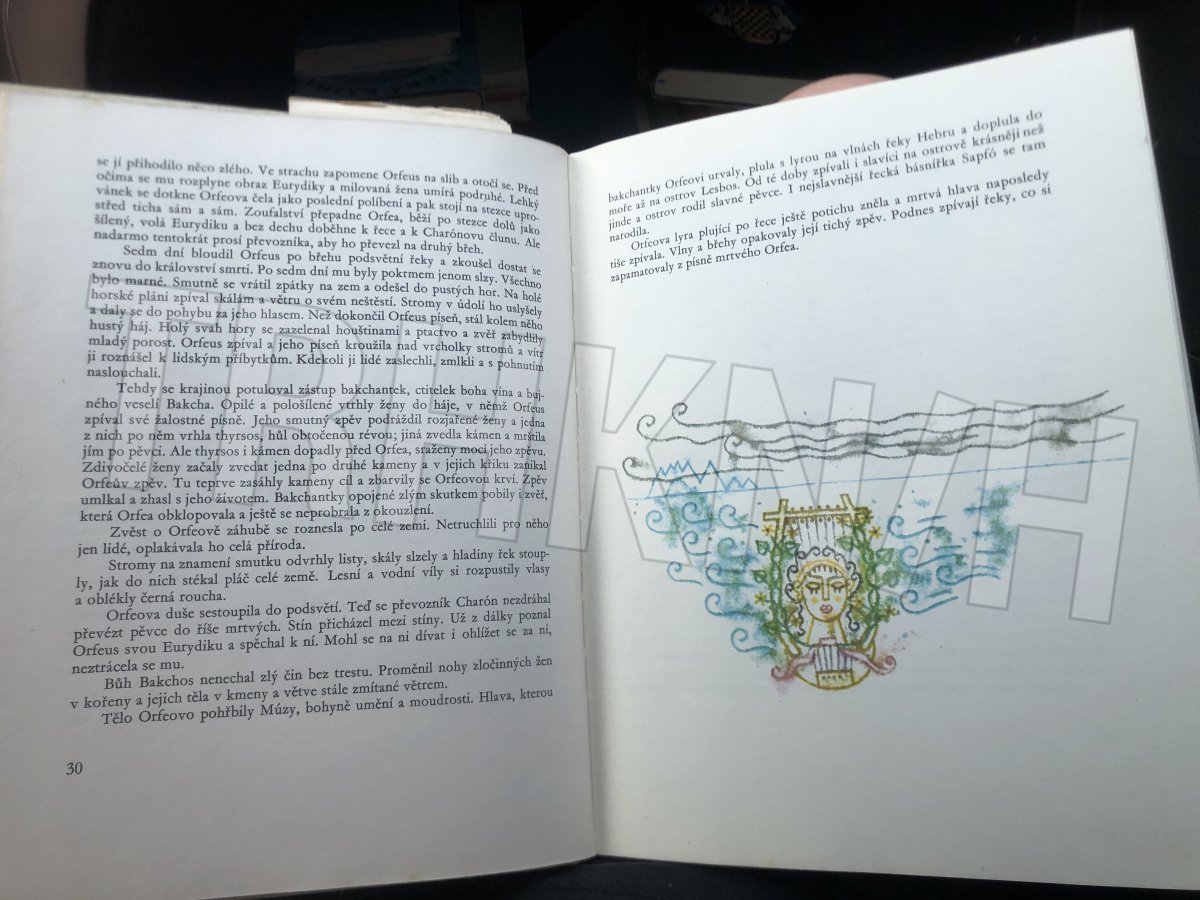 se jí přihodilo něco zlého. Ve strachu zapomene Orfeus na slib a otočí se. Před
očima se mu rozplyne obraz Eurydiky a milovaná žena umírá podruhé. Lehký
vánek se dotkne Orfeova čela jako poslední políbení a pak stojí na stezce upro-
střed ticha sám a sám. Zoufalství přepadne Orfea, běží po stezce dolů jako
šílený, volá Eurydiku a bez dechu doběhne k řece a k Charónovu člunu. Ale
nadarmo tentokrát prosí převozníka, aby ho převezl na druhý břeh.
Sedm dní bloudil Orfeus po břehu podsvětní řeky a zkoušel dostat se
znovu do království smrti. Po sedm dní mu byly pokrmem jenom slzy. Všechno
bylo marné. Smutně se vrátil zpátky na zem a odešel do pustých hor. Na holé
horské pláni zpíval skálám a větru o svém neštěstí. Stromy v údolí ho uslyšely
a daly se do pohybu za jeho hlasem. Než dokončil Orfeus píseň, stál kolem něho
hustý háj. Holý svah hory se zazelenal houštinami a ptactvo a zvěř zabydlily
mladý porost. Orfeus zpíval a jeho píseň kroužila nad vrcholky stromů a vítr
ji roznášel k lidským příbytkům. Kdekoli ji lidé zaslechli, zmlkli a s pohnutím
naslouchali.
Tehdy se krajinou potuloval zástup bakchantek, ctitelek boha vína a buj-
ného veselí Bakcha. Opilé a pološílené vtrhly ženy do háje, v němž Orfeus
zpíval své žalostné písně. Jeho smutný zpěv podráždil rozjařené ženy a jedna
z nich po něm vrhla thyrsos, hůl obtočenou révou; jiná zvedla kámen a mrštila
jím po pěvci. Ale thyrsos i kámen dopadly před Orfea, sraženy mocí jeho zpěvu.
Zdivočelé ženy začaly zvedat jedna po druhé kameny a v jejich křiku zanikal
Orfeův zpěv. Tu teprve zasáhly kameny cíl a zbarvily se Orfeovou krví. Zpěv
umlkal a zhasl s jeho životem. Bakchantky opojené zlým skutkem pobily i zvěř,
která Orfea obklopovala a ještě se neprobrala z okouzlení.
Zvěst o Orfeově záhubě se roznesla po celé zemi. Netruchlili pro něho
jen lidé, oplakávala ho celá příroda.
Stromy na znamení smutku odvrhly listy, skály slzely a hladiny řek stoup-
ly, jak do nich stékal pláč celé země. Lesní a vodní víly si rozpustily vlasy
a oblékly černá roucha.
Orfeova duše sestoupila do podsvětí. Teď se převozník Charón nezdráhal
převézt pěvce do říše mrtvých. Stín přicházel mezi stíny. Už z dálky poznal
Orfeus svou Eurydiku a spěchal k ní. Mohl se na ni dívat i ohlížet se za ní,
neztrácela se mu.
Bůh Bakchos nenechal zlý čin bez trestu. Proměnil nohy zločinných žen
v kořeny a jejich těla v kmeny a větve stále zmítané větrem.
Tělo Orfeovo pohřbily Múzy, bohyně umění a moudrosti. Hlava, kterou
30
bakchantky Orfeovi urvaly, plula s lyrou na vlnách řeky Hebru a doplula do
moře až na ostrov Lesbos. Od té doby zpívali i slavíci na ostrově krásněji než
jinde a ostrov rodil slavné pěvce. I nejslavnější řecká básnířka Sapfó se tam
narodila.
Orfeova lyra plující po řece ještě potichu zněla a mrtvá hlava naposledy
tiše zpívala. Vlny a břehy opakovaly její tichý zpěv. Podnes zpívají řeky, co si
zapamatovaly z písně mrtvého Orfea.